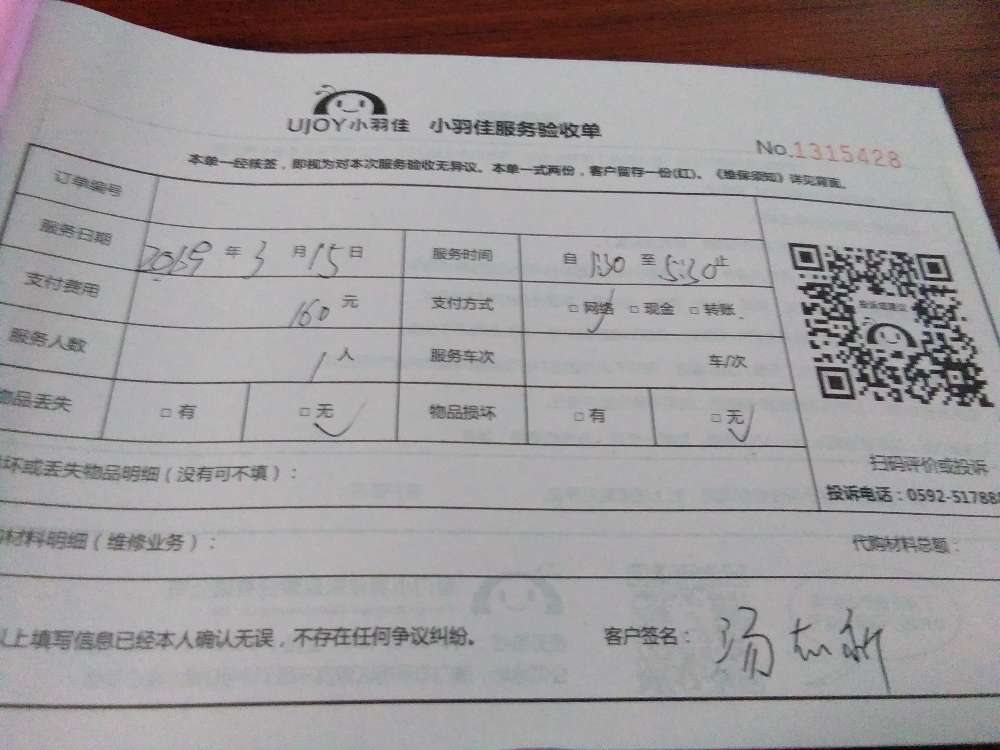 UJOY小羽佳 小羽佳服务验收单
No.1315428
本单一经核签，即视为对本次服务验收无异议。本单一式两份，客户留存一份(红)。《维保须知》详见背面。
订单编号
服务日期 2019 年 3 月 15 日 服务时间 自 1:30 至 5:30 止
支付费用 160 元 支付方式 □ 网络 □ 现金 □ 转账
服务人数 1 人 服务车次 车/次
物品丢失 □ 有 □ 无 物品损坏 □ 有 □ 无
投诉或建议
扫码评价或投诉
坏或丢失物品明细（没有可不填）：
投诉电话：0592-517888
材料明细（维修业务）： 代购材料总额：
以上填写信息已经本人确认无误，不存在任何争议纠纷。 客户签名： 汤志新